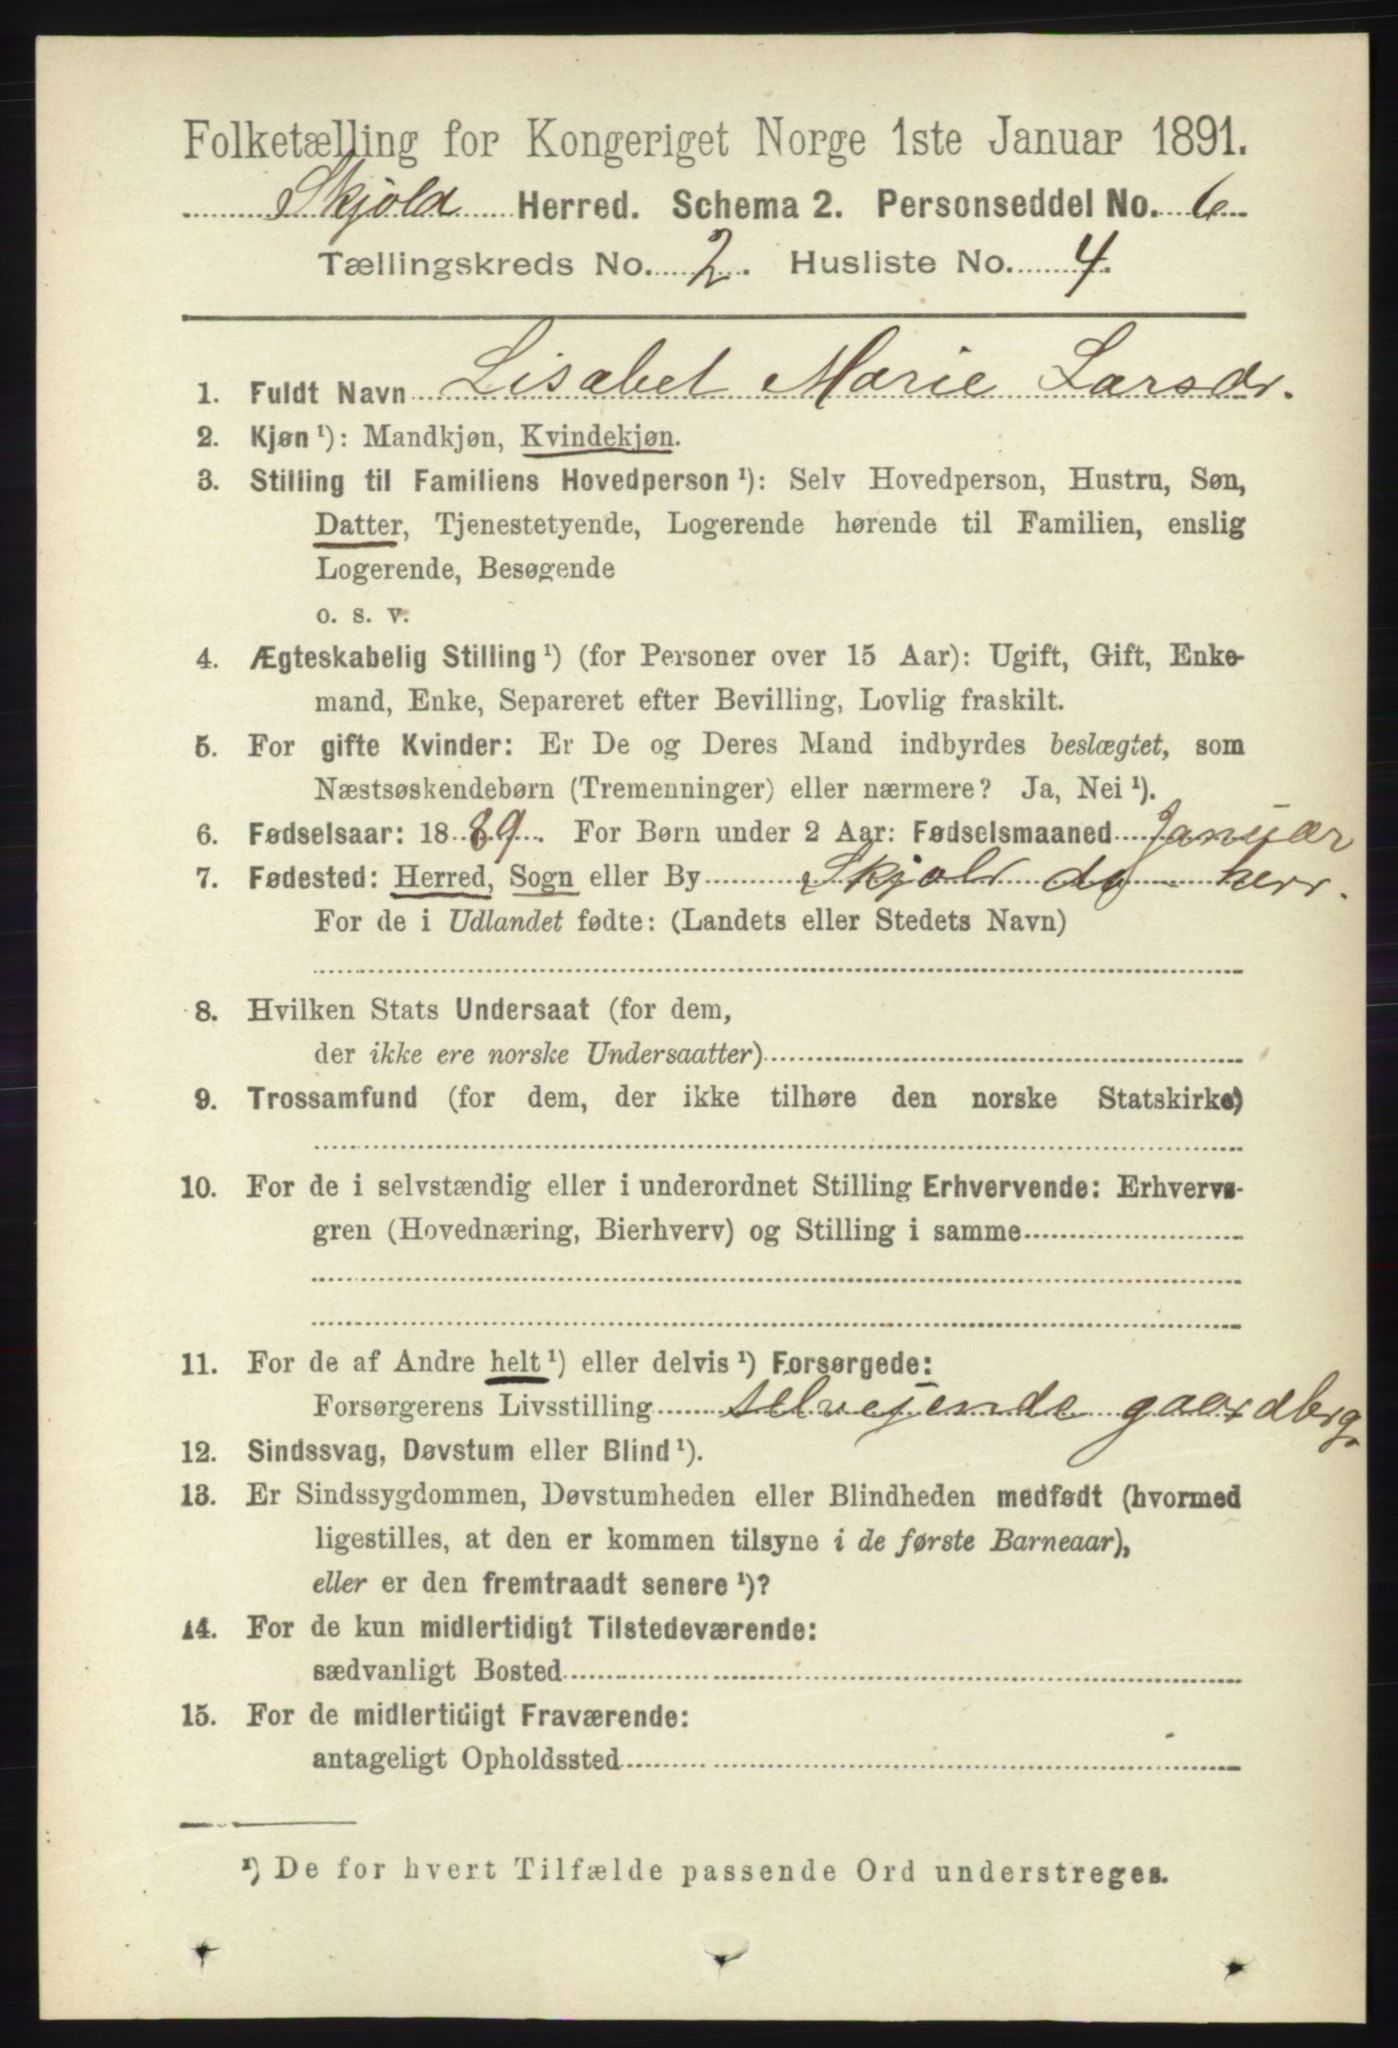 Folketælling for Kongeriget Norge 1ste Januar 1891.
Skjold Herred. Schema 2. Personseddel No. 6
Tællingskreds No. 2. Husliste No. 4.
1. Fuldt Navn Lisabet Marie Larsdr.
2. Kjøn ¹): Mandkjøn, Kvindekjøn.
3. Stilling til Familiens Hovedperson ¹): Selv Hovedperson, Hustru, Søn,
Datter, Tjenestetyende, Logerende hørende til Familien, enslig
Logerende, Besøgende
o. s. v.
4. Ægteskabelig Stilling ¹) (for Personer over 15 Aar): Ugift, Gift, Enke-
mand, Enke, Separeret efter Bevilling, Lovlig fraskilt.
5. For gifte Kvinder: Er De og Deres Mand indbyrdes beslægtet, som
Næstsøskendebørn (Tremenninger) eller nærmere? Ja, Nei ¹).
6. Fødselsaar: 1889. For Børn under 2 Aar: Fødselsmaaned Januar
7. Fødested: Herred, Sogn eller By Skjold do herr.
For de i Udlandet fødte: (Landets eller Stedets Navn)
8. Hvilken Stats Undersaat (for dem,
der ikke ere norske Undersaatter)
9. Trossamfund (for dem, der ikke tilhøre den norske Statskirke)
10. For de i selvstændig eller i underordnet Stilling Erhvervende: Erhvervs-
gren (Hovednæring, Bierhverv) og Stilling i samme
11. For de af Andre helt ¹) eller delvis ¹) Forsørgede:
Forsørgerens Livsstilling selvejende gaardbrg.
12. Sindssvag, Døvstum eller Blind ¹).
13. Er Sindssygdommen, Døvstumheden eller Blindheden medfødt (hvormed
ligestilles, at den er kommen tilsyne i de første Barneaar),
eller er den fremtraadt senere ¹)?
14. For de kun midlertidigt Tilstedeværende:
sædvanligt Bosted
15. For de midlertidigt Fraværende:
antageligt Opholdssted
¹) De for hvert Tilfælde passende Ord understreges.